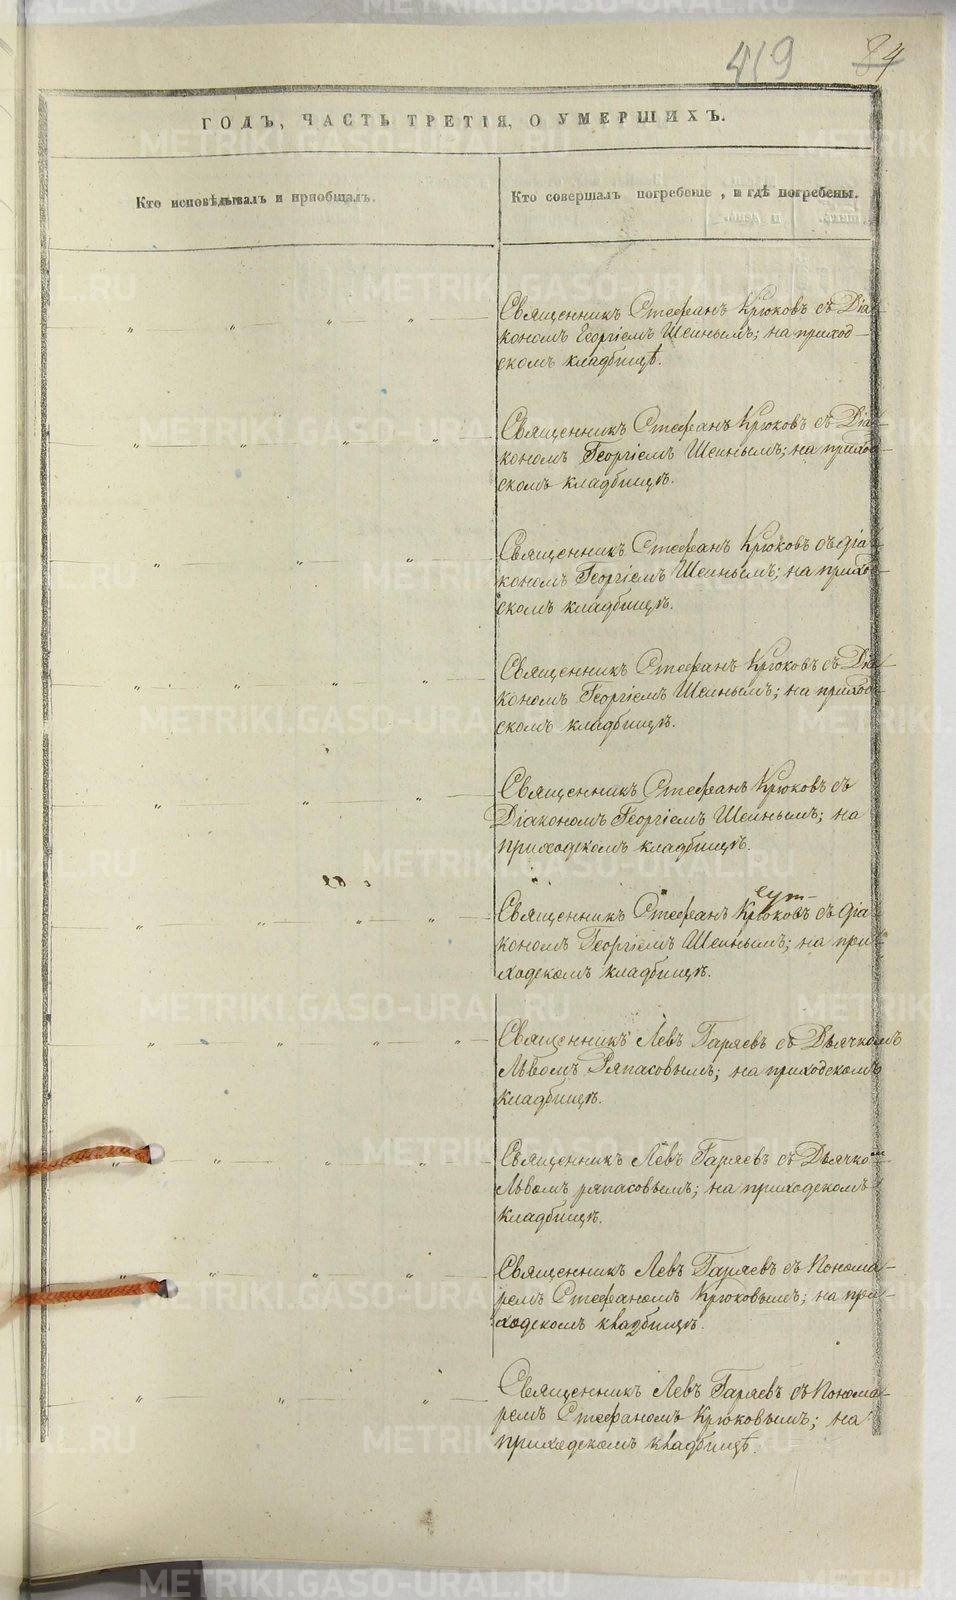 419 84
ГОДЪ, ЧАСТЬ ТРЕТІЯ, О УМЕРШИХЪ.
Кто исповѣдывалъ и пріобщалъ.
Кто совершалъ погребеніе, и гдѣ погребены.
Священникъ Стефанъ Крюковъ съ Діа-
кономъ Георгіемъ Шеинымъ; на приход-
скомъ кладбищѣ.
Священникъ Стефанъ Крюковъ съ Діа-
кономъ Георгіемъ Шеинымъ; на приход-
скомъ кладбищѣ.
Священникъ Стефанъ Крюковъ съ діа-
кономъ Георгіемъ Шеинымъ; на приход-
скомъ кладбищѣ.
Священникъ Стефанъ Крюковъ съ Діа-
кономъ Георгіемъ Шеинымъ; на приход-
скомъ кладбищѣ.
Священникъ Стефанъ Крюковъ съ
Діакономъ Георгіемъ Шеинымъ; на
приходскомъ кладбищѣ.
Священникъ Стефанъ Крюковъ съ діа-
кономъ Георгіемъ Шеинымъ; на при-
ходскомъ кладбищѣ.
Священникъ Левъ Гаряевъ съ Дьячкомъ
Львомъ Ряпасовымъ; на приходскомъ
кладбищѣ.
Священникъ Левъ Гаряевъ съ Дьячкомъ
Львомъ ряпасовымъ; на приходскомъ
кладбищѣ.
Священникъ Левъ Гаряевъ съ Понома-
ремъ Стефаномъ Крюковымъ; на при-
ходскомъ кладбищѣ.
Священникъ Левъ Гаряевъ съ Понома-
ремъ Стефаномъ Крюковымъ; на
приходскомъ кладбищѣ.
METRIKI.GASO-URAL.RU